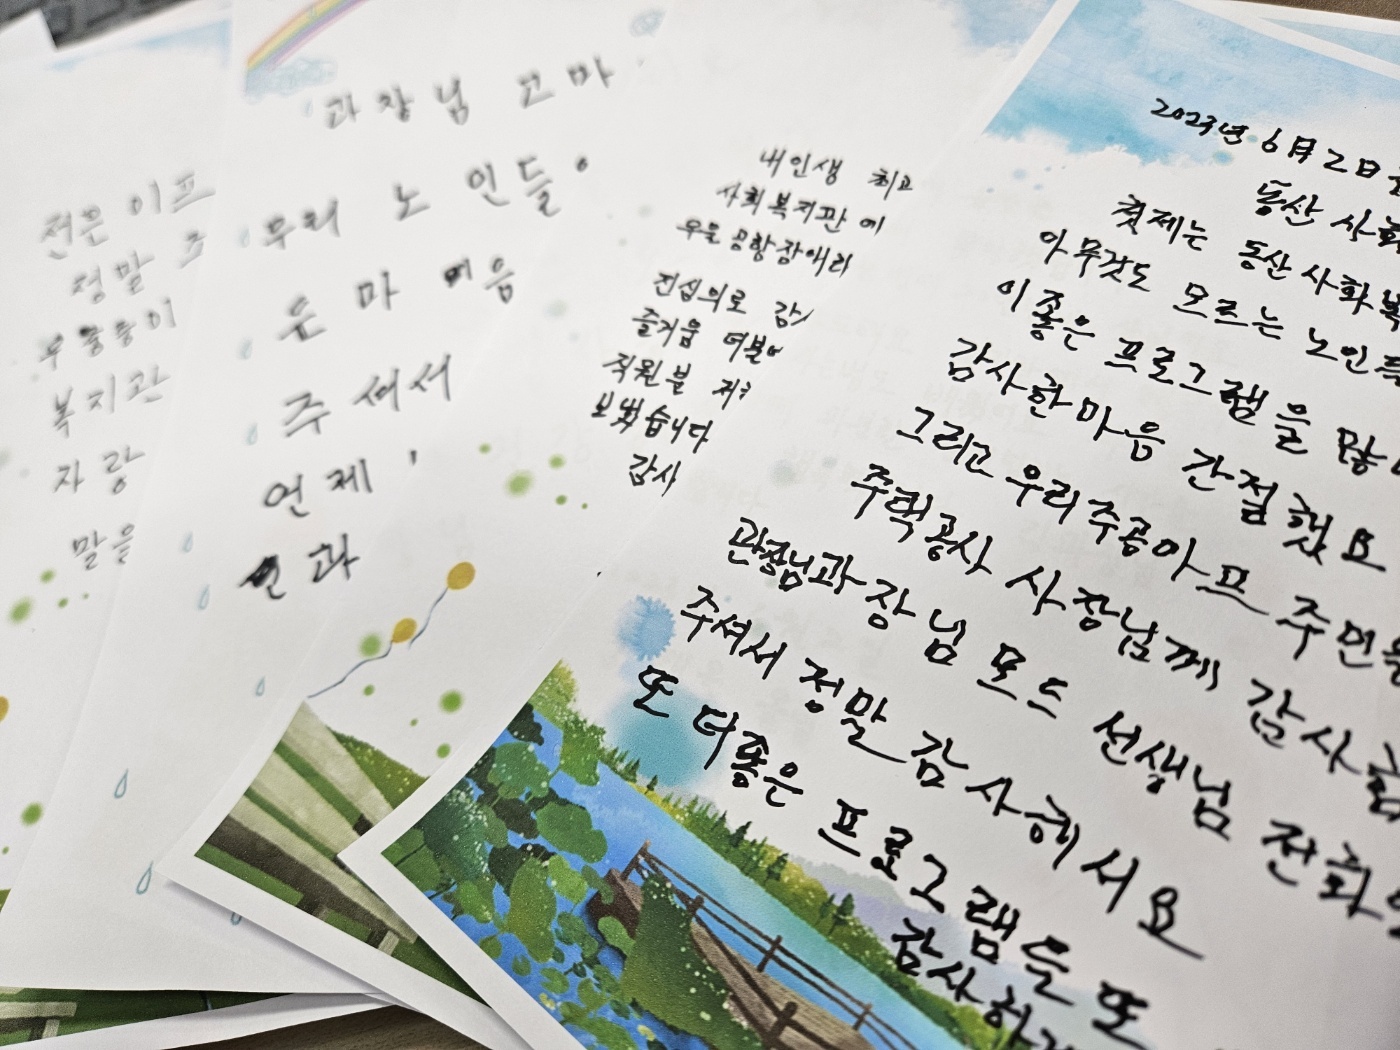 전은 이프
정말
우울증이
복지관
자랑
말을
과장님 고마
우리 노인들
운 마음
주셔서
언제
과
내인생 최고
사회복지관에
우울 공항장애리
진심의로 감
즐거움 더불어
직원분
보냈습니다
감사
2023년 6월 2일
동산 사회
첫제는 동산사회복
아무것도 모르는 노인
이좋은 프로그램을 많
감사한마음 간절했요
그리고 우리주공아프 주민
주택공사 사장님께 감사
관장님과장님 모드 선생님 전화
주셔서 정말 감사해서요
또 더좋은 프로그램도 또
감사하